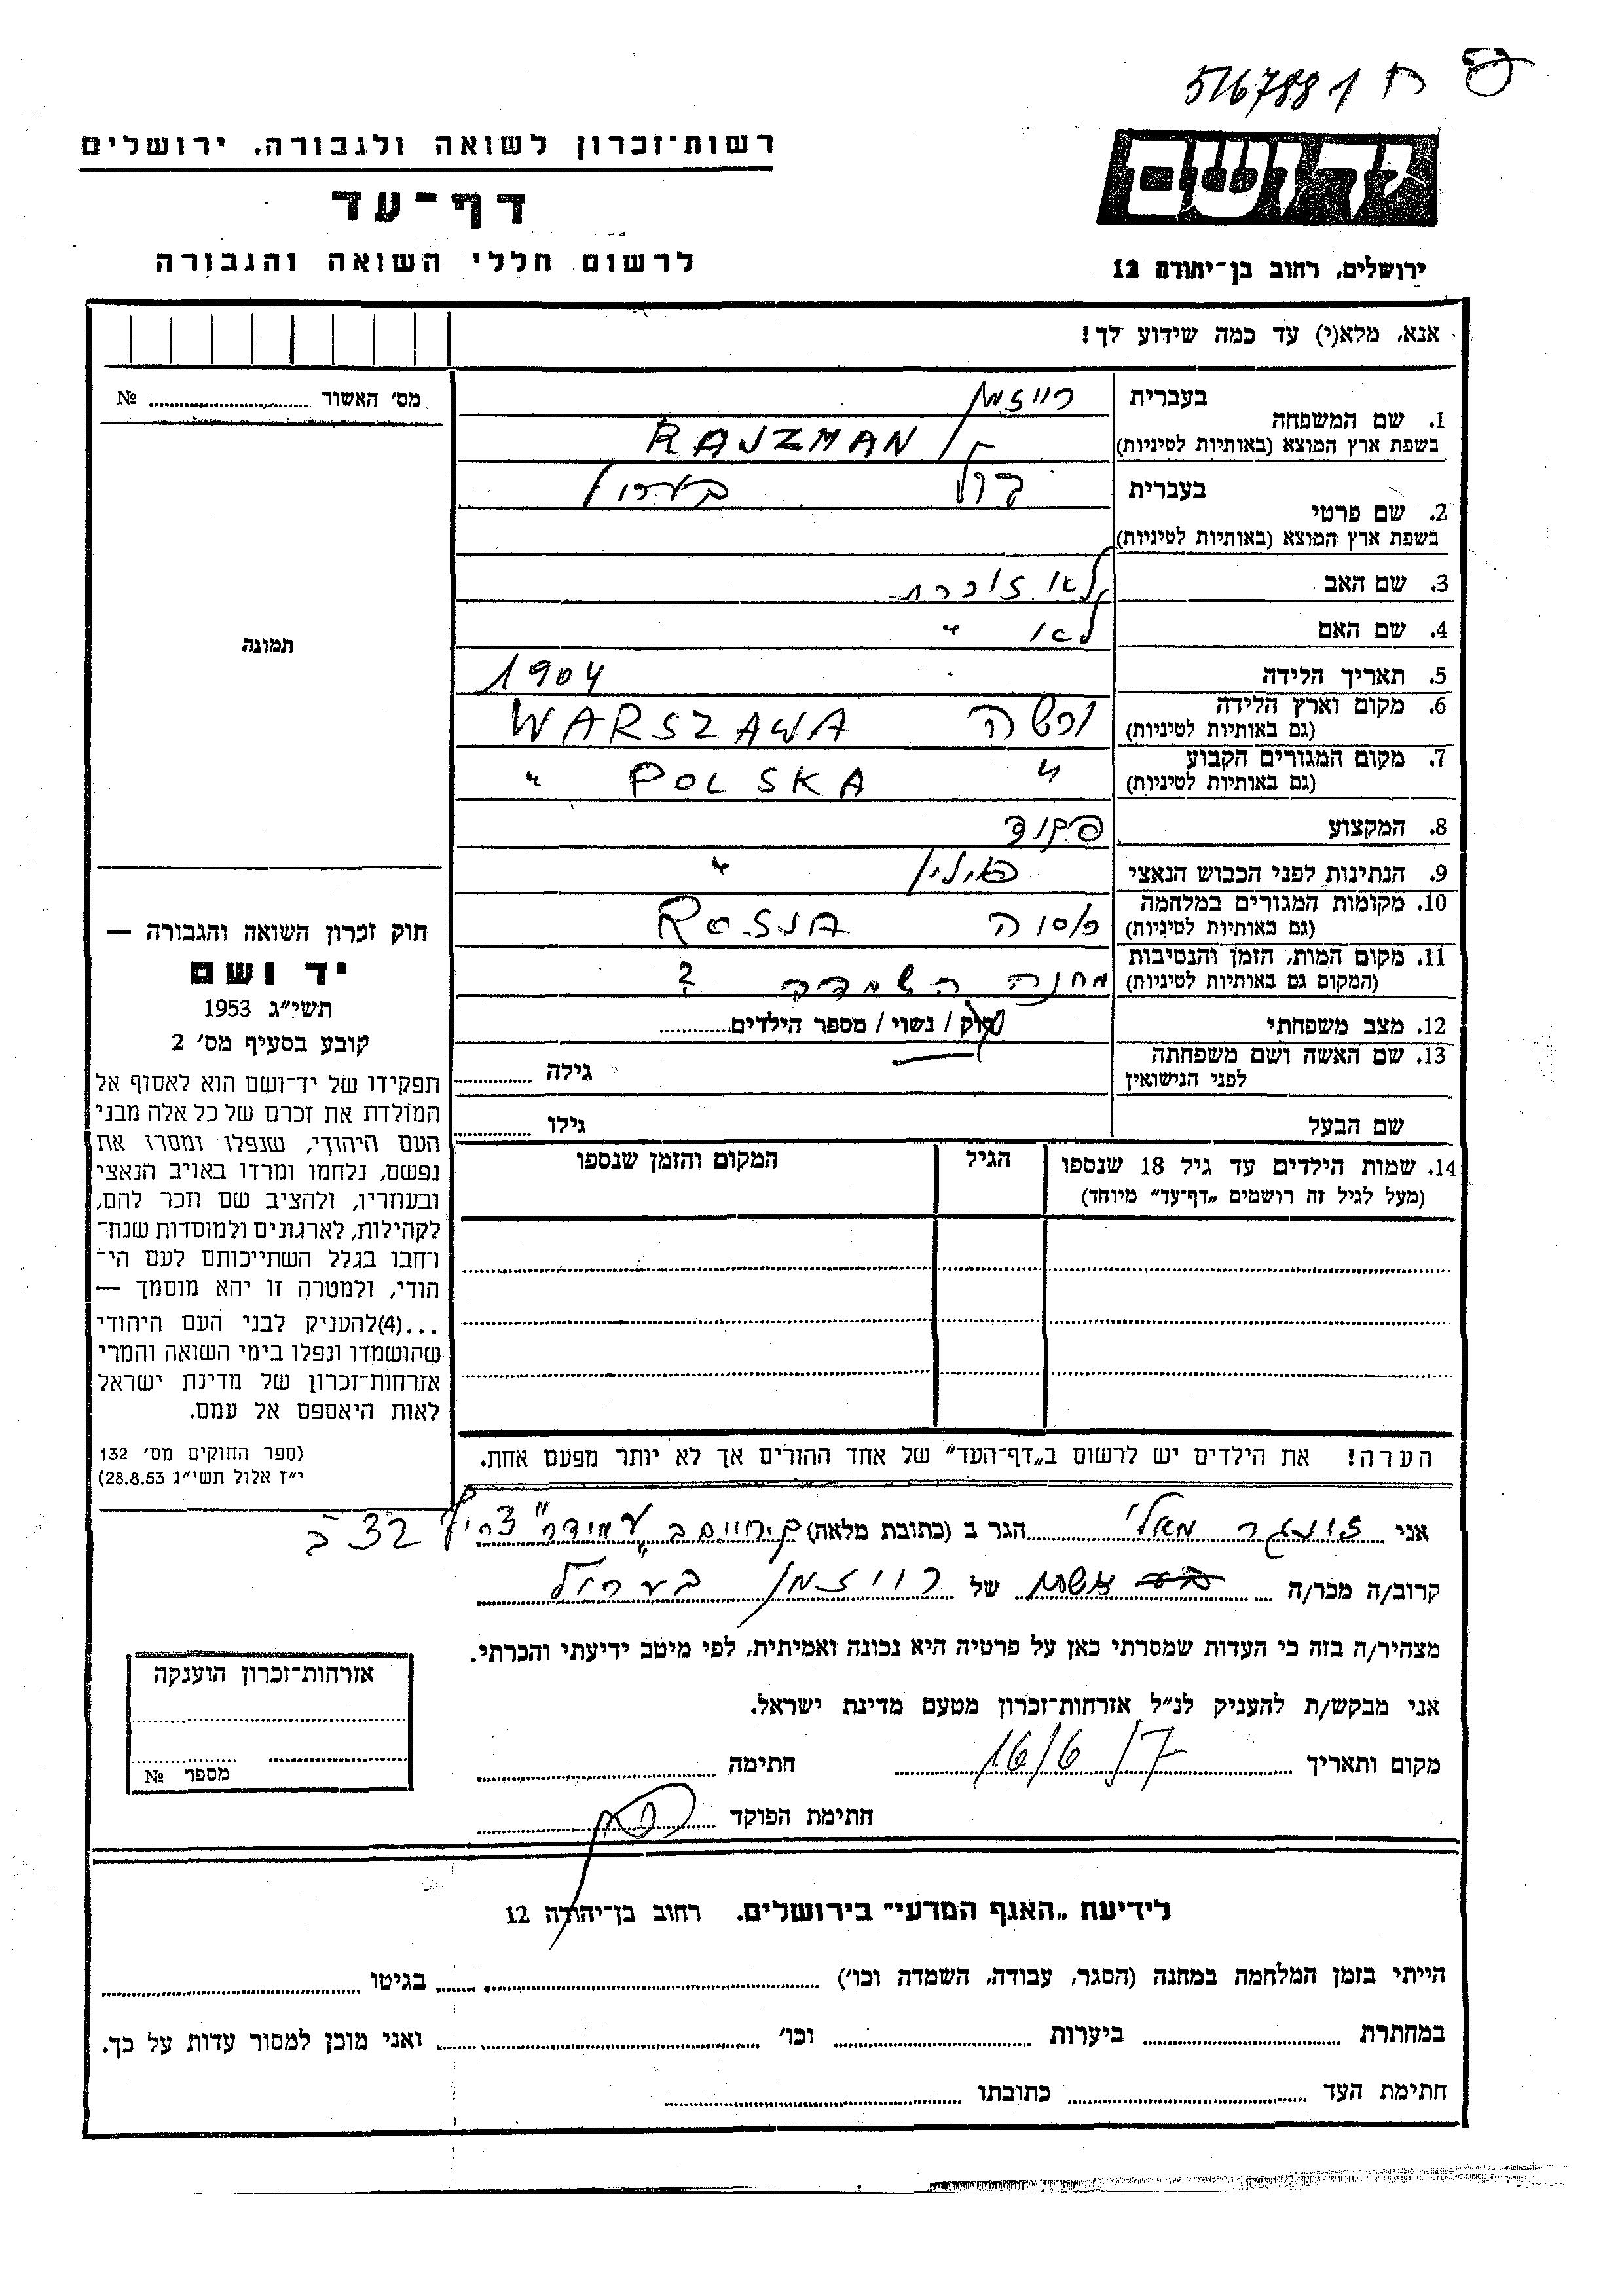 5167881 ח
רשות־זכרון לשואה ולגבורה, ירושלים
דף־עד
לרשום חללי השואה והגבורה
יד ושם
ירושלים, רחוב בן־יהודה 12
אנא, מלא(י) עד כמה שידוע לך!
מס׳ האשור № 
תמונה
חוק זכרון השואה והגבורה —
יד ושם
תשי״ג 1953
קובע בסעיף מס׳ 2
תפקידו של יד־ושם הוא לאסוף אל
המולדת את זכרם של כל אלה מבני
העם היהודי, שנפלו ומסרו את
נפשם, נלחמו ומרדו באויב הנאצי
ובעוזריו, ולהציב שם וזכר להם,
לקהילות, לארגונים ולמוסדות שנח־
רחבו בגלל השתייכותם לעם הי־
הודי, ולמטרה זו יהא מוסמך —
...(4)להעניק לבני העם היהודי
שהושמדו ונפלו בימי השואה והמרי
אזרחות־זכרון של מדינת ישראל
לאות היאספם אל עמם.
(ספר החוקים מס׳ 132
י״ז אלול תשי״ג 28.8.53)
1. שם המשפחה בעברית רייזמן
בשפת ארץ המוצא (באותיות לטיניות) RAJZMAN
2. שם פרטי בעברית
בשפת ארץ המוצא (באותיות לטיניות)
3. שם האב לא זוכרת
4. שם האם לא "
5. תאריך הלידה 1904
6. מקום וארץ הלידה (גם באותיות לטיניות) ורשה WARSZAWA
7. מקום המגורים הקבוע (גם באותיות לטיניות) " POLSKA "
8. המקצוע פקיד
9. הנתינות לפני הכבוש הנאצי פולין "
10. מקומות המגורים במלחמה (גם באותיות לטיניות) רוסיה ROSJA
11. מקום המות, הזמן והנסיבות (המקום גם באותיות לטיניות) מחנה השמדה ?
12. מצב משפחתי רווק / נשוי / מספר הילדים
13. שם האשה ושם משפחתה לפני הנישואין גילה
שם הבעל גילו
14. שמות הילדים עד גיל 18 שנספו הגיל המקום והזמן שנספו
(מעל לגיל זה רושמים „דף־עד״ מיוחד)
הערה! את הילדים יש לרשום ב„דף־העד״ של אחד ההורים אך לא יותר מפעם אחת.
אני מאלי הגר ב (כתובת מלאה) ק. חיים ב עמידר צריף 32 ב
קרוב/ה מכר/ה אשתו של רייזמן
מצהיר/ה בזה כי העדות שמסרתי כאן על פרטיה היא נכונה ואמיתית, לפי מיטב ידיעתי והכרתי.
אני מבקש/ת להעניק לנ״ל אזרחות־זכרון מטעם מדינת ישראל.
מקום ותאריך 16/6/7 חתימה
חתימת הפוקד
אזרחות־זכרון הוענקה
מספר №
לידיעת „האגף המדעי״ בירושלים. רחוב בן־יהודה 12
הייתי בזמן המלחמה במחנה (הסגר, עבודה, השמדה וכו׳) בגיטו
במחתרת ביערות וכו׳ ואני מוכן למסור עדות על כך.
חתימת העד כתובתו